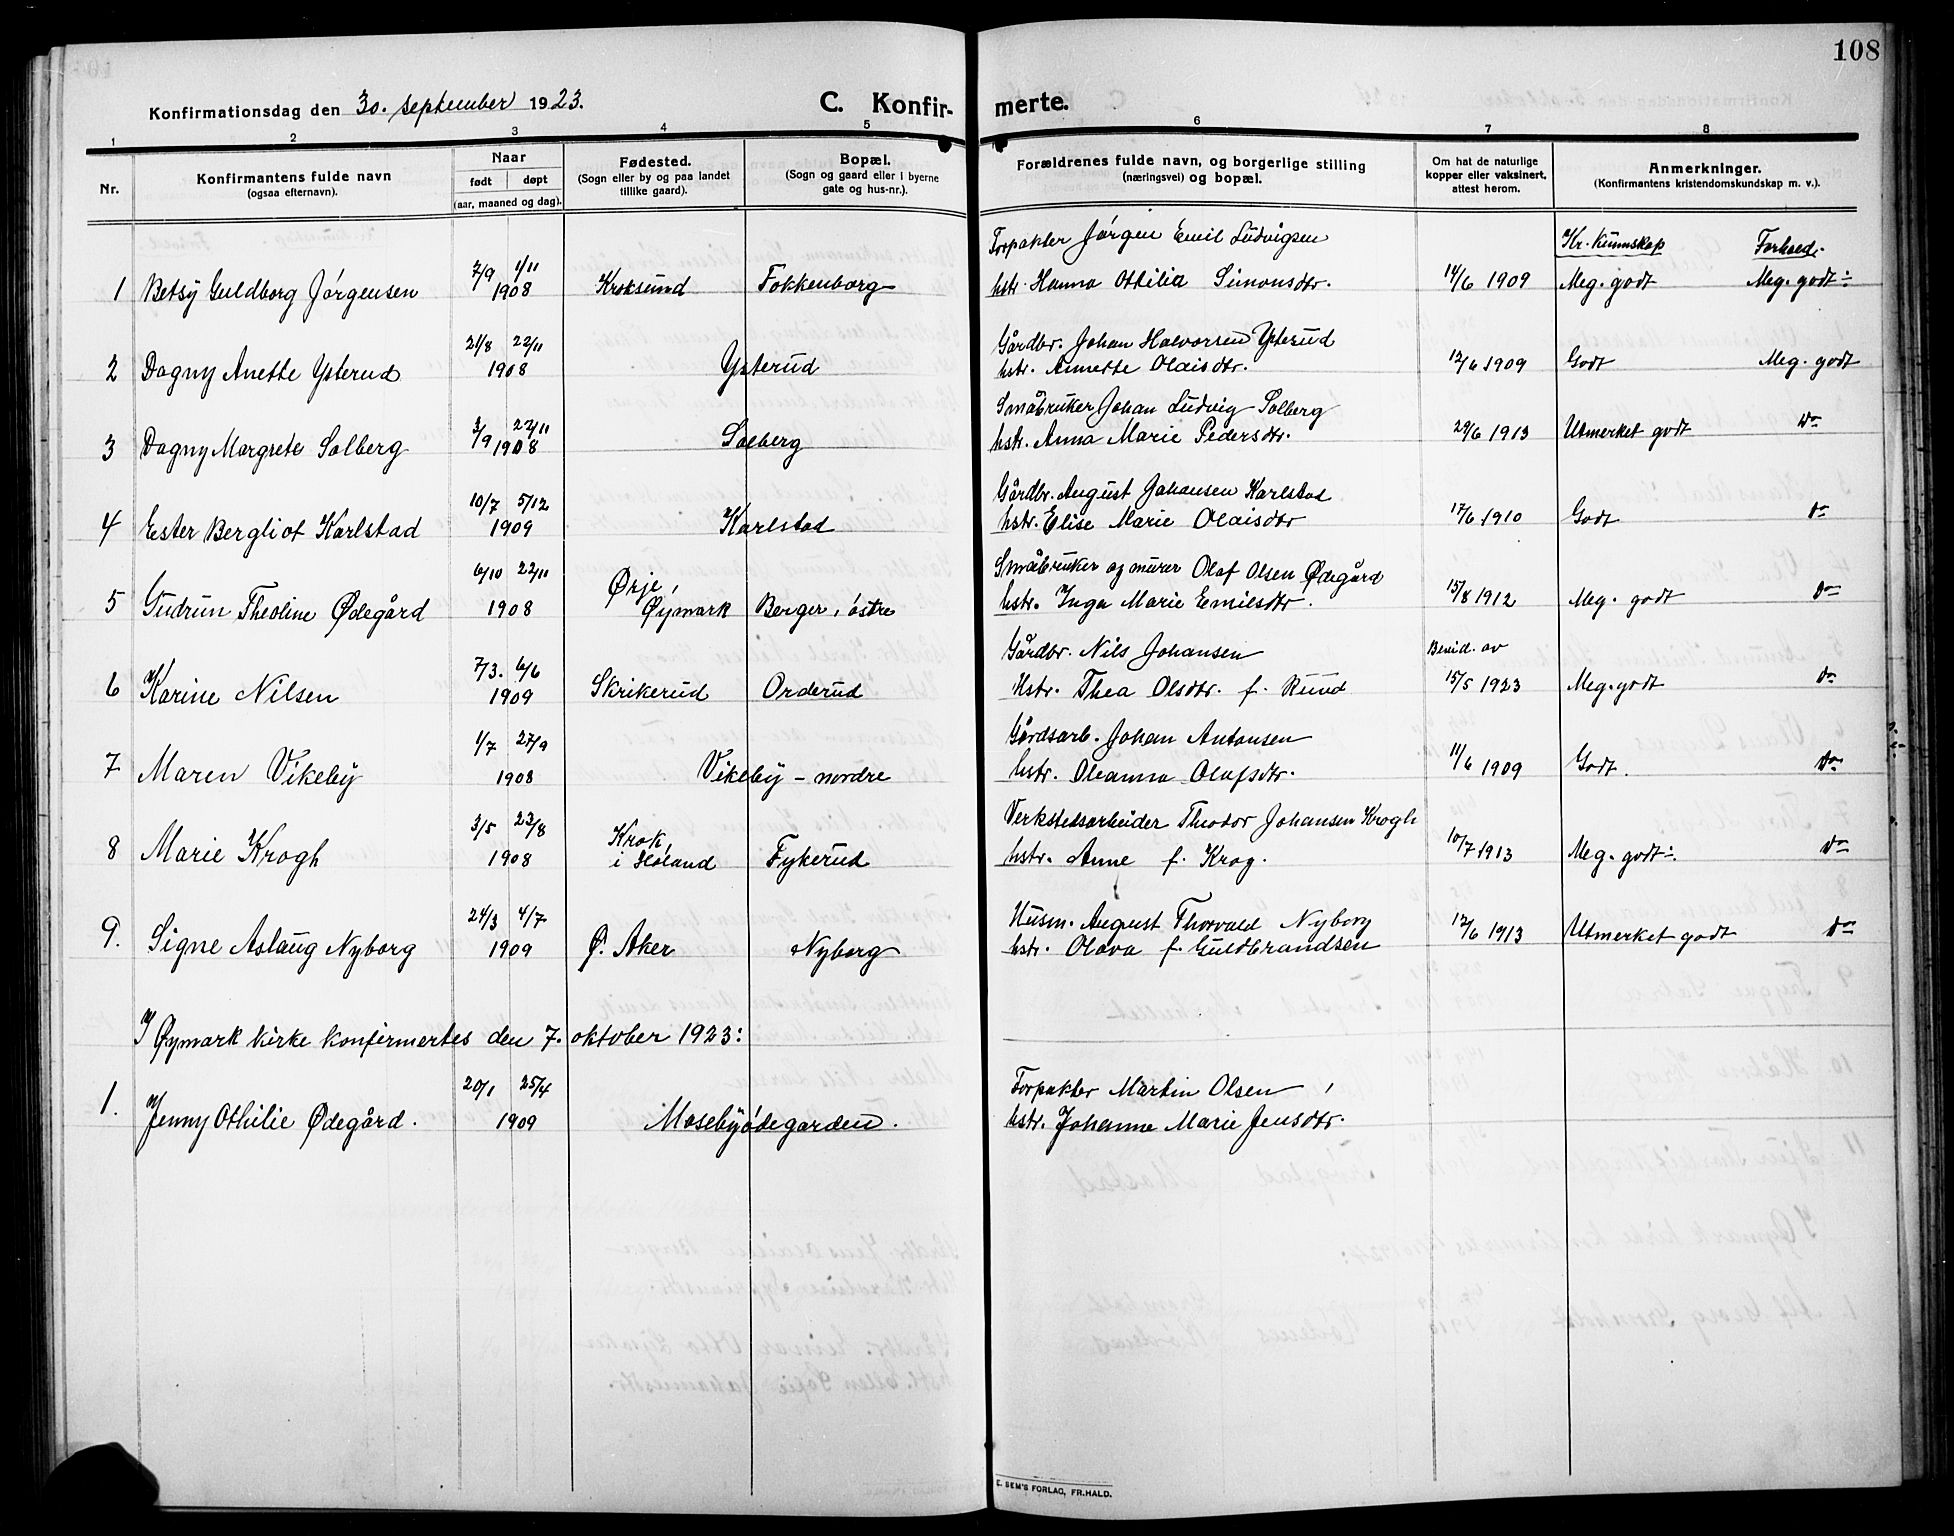 108
Konfirmationsdag den 30. september 1923.
C. Konfir-
merte.
1 2 3 4 5 6 7 8
Nr.
Konfirmantens fulde navn
(ogsaa efternavn).
Naar
født døpt
(aar, maaned og dag).
Fødested.
(Sogn eller by og paa landet
tillike gaard).
Bopæl.
(Sogn og gaard eller i byerne
gate og hus-nr.).
Forældrenes fulde navn, og borgerlige stilling
(næringsvei) og bopæl.
Om hat de naturlige
kopper eller vaksinert,
attest herom.
Anmerkninger.
(Konfirmantens kristendomskundskap m. v.).
Kr. kunnskap Forhold:
Forpakter Jørgen Emil Ludvigsen
7/9 1/11
1 Betsy Guldborg Jørgensen 1908 Kroksund Fokkenborg hstr. Hanna Othilia Simonsdtr. 14/6 1909 Meg. godt Meg. godt÷
21/8 22/11 Gårdbr. Johan Halvorsen Ysterud
2 Dagny Anette Ysterud 1908 Ysterud hstr. Annette Olaisdtr. 12/6 1909 Godt Meg. godt
3/9 22/11 Småbruker Johan Ludvig Solberg
3 Dagny Margrete Solberg 1908 Solberg hstr. Anna Marie Pedersdtr. 29/6 1913 Utmerket godt Do
10/7 5/12 Gårdbr. August Johansen Karlstad
4 Ester Bergliot Karlstad 1909 Karlstad hstr. Elise Marie Olaisdtr 17/6 1910 Godt do
6/10 22/11 Ørje, Småbruker og murer Olaf Olsen Ødegård
5 Gudrun Theoline Ødegård 1908 Øymark Berger, østre hstr. Inga Marie Emilsdtr. 15/8 1912 Meg. godt do
7/3. 6/6 Gårdbr. Nils Johansen Bevid. av
6 Karine Nilsen 1909 Skrikerud Orderud Hstr. Thea Olsdtr. f. Ruud 15/5 1923 Meg. godt do
1/7 27/9 Gårdsarb. Johan Antonsen
7 Maren Vikeby 1908 Vikeby - nordre hstr. Oleanna Olafsdtr. 11/6 1909 Godt. do
3/5 23/8 Krok, Verkstedsarbeider Theodor Johansen Krogh
8 Marie Krogh 1908 i Høland Fykerud hstr. Anne f. Krog. 10/7 1913 Meg. godt÷. do
24/3 4/7 Husm. August Thorvald Nyborg
9. Signe Aslaug Nyborg 1909 Ø. Aker Nyborg hstr. Olava f. Guldbrandsen 12/6 1913 Utmerket godt do
I Øymark kirke konfirmertes den 7. oktober 1923:
20/1 25/4 Forpakter Martin Olsen,
1. Jenny Othilie Ødegård. 1909 Mosebyødegarden. hstr. Johanne Marie Jensdtr.
E. SEM'S FORLAG, FR.HALD.